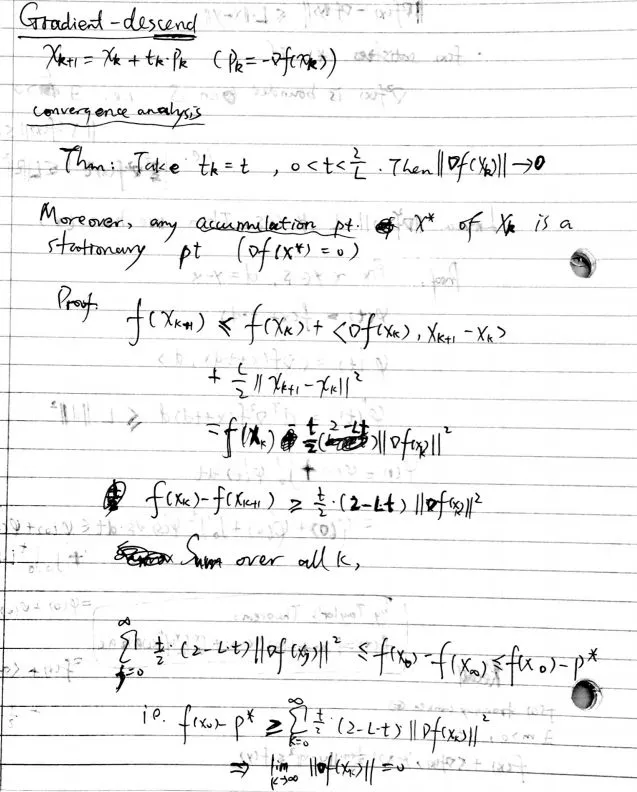 Gradient-descend
X_{k+1} = X_k + t_k·P_k (P_k = -∇f(X_k))
convergence analysis
Thm: Take t_k = t , 0 < t < 2/L . Then ||∇f(X_k)|| → 0
Moreover, any accumulation pt. X* of X_k is a
stationary pt (∇f(X*) = 0)
Proof.
f(X_{k+1}) ≤ f(X_k) + <∇f(X_k), X_{k+1} - X_k>
+ L/2 ||X_{k+1} - X_k||²
= f(X_k) - t/2 (2-Lt) ||∇f(X_k)||²
f(X_k) - f(X_{k+1}) ≥ t/2 · (2-Lt) ||∇f(X_k)||²
Sum over all k,
∑_{j=0}^{∞} t/2 · (2-L·t) ||∇f(X_j)||² ≤ f(X_0) - f(X_∞) ≤ f(X_0) - p*
i.e. f(X_0) - p* ≥ ∑_{k=0}^{∞} t/2 · (2-L·t) ||∇f(X_k)||²
⇒ lim_{k→∞} ||∇f(X_k)|| = 0